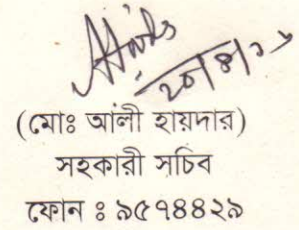 ২০/৪/১৬
(মোঃ আলী হায়দার)
সহকারী সচিব
ফোন ঃ ৯৫৭৪৪২৯